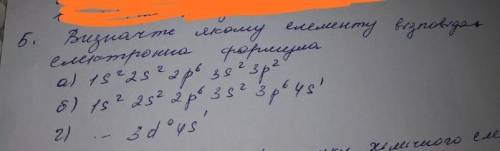 5. Визначте якому елементу відповідає
електронна формула
а) 1s² 2s² 2p⁶ 3s² 3p²
б) 1s² 2s² 2p⁶ 3s² 3p⁶ 4s¹
2) .. 3d⁰ 4s¹
хімічного еле